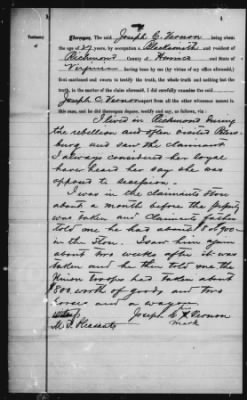 Testimony
of
Thereupon, The said Joseph C. Vernon being about
the age 47 years, by occupation a Blacksmith and resident of
Richmond County of Henrico and State of
Virginia having been by me (by virtue of my office aforesaid)
first cautioned and sworn to testify the truth, the whole truth and nothing but the
truth, in the matter of the claim aforesaid, I did carefully examine the said
Joseph C. Vernon apart from all the other witnesses sworn in
this case, and he did thereupon depose, testify and say, as follows, viz:
I lived in Richmond during
the rebellion and often visited
and saw the claimant
I always considered her loyal
have heard her say she was
opposed to secession.
I was in the claimants store
about a month before the property
was taken and Claimants father
told me he had about 8 or 900—
in the Store. I saw him again
about two weeks after it was
taken and he then told me the
Union troops had taken about
800 worth of goods and two
horses and a wagon
Witness Joseph C X Vernon
M. F. Pleasants mark